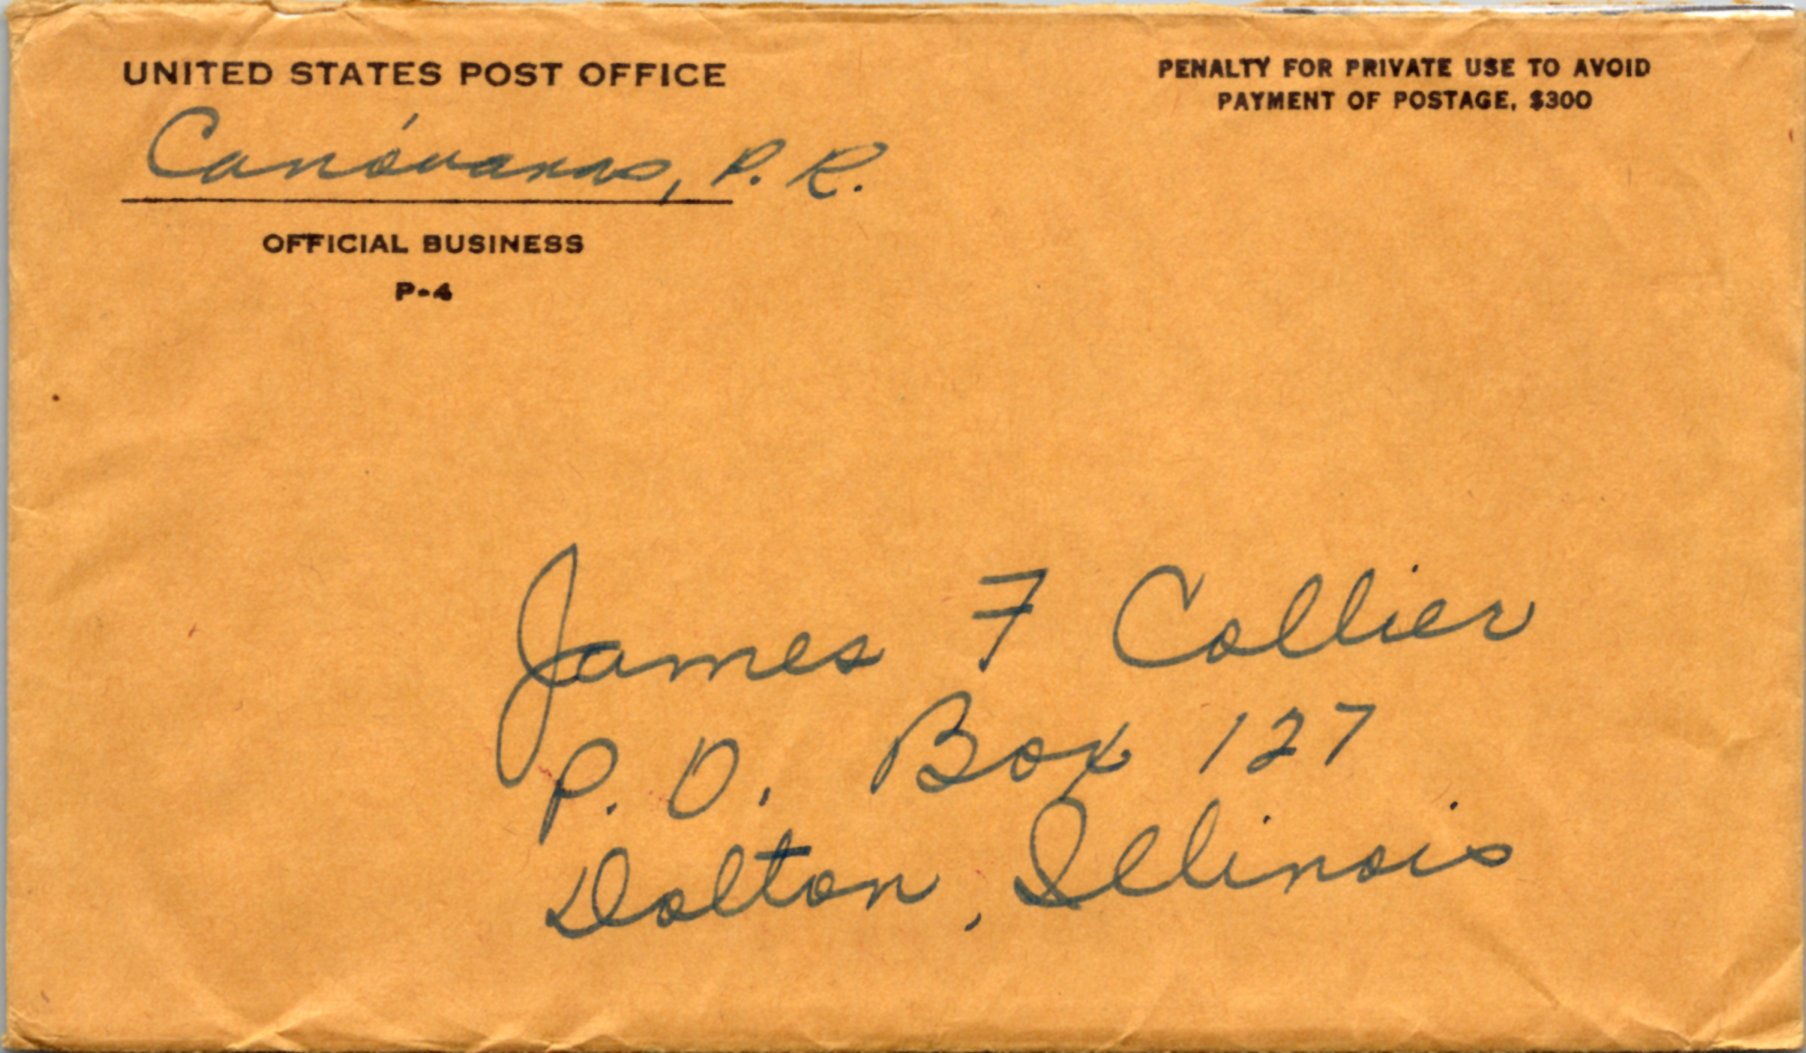 UNITED STATES POST OFFICE
Canóvanas, P. R.
OFFICIAL BUSINESS
P-4
PENALTY FOR PRIVATE USE TO AVOID
PAYMENT OF POSTAGE, $300
James F Collier
P. O. Box 127
Dolton, Illinois